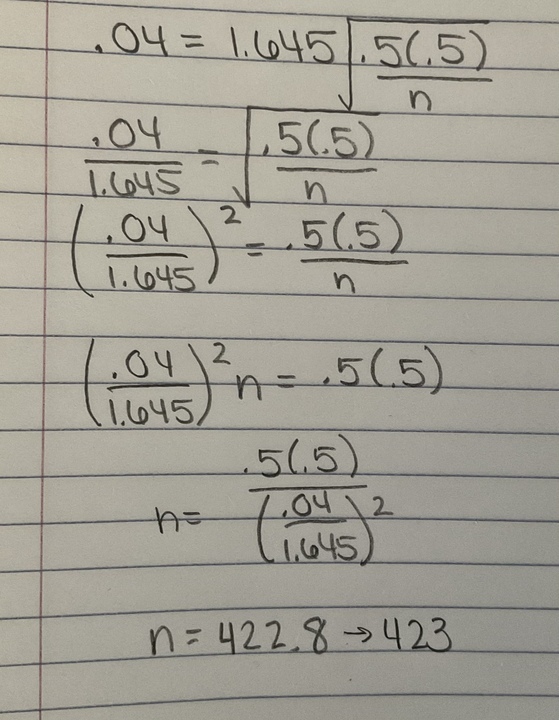 .04 = 1.645 √(.5(.5)/n)
.04/1.645 = √(.5(.5)/n)
(.04/1.645)² = .5(.5)/n
(.04/1.645)² n = .5(.5)
n = .5(.5)/(.04/1.645)²
n = 422.8 → 423